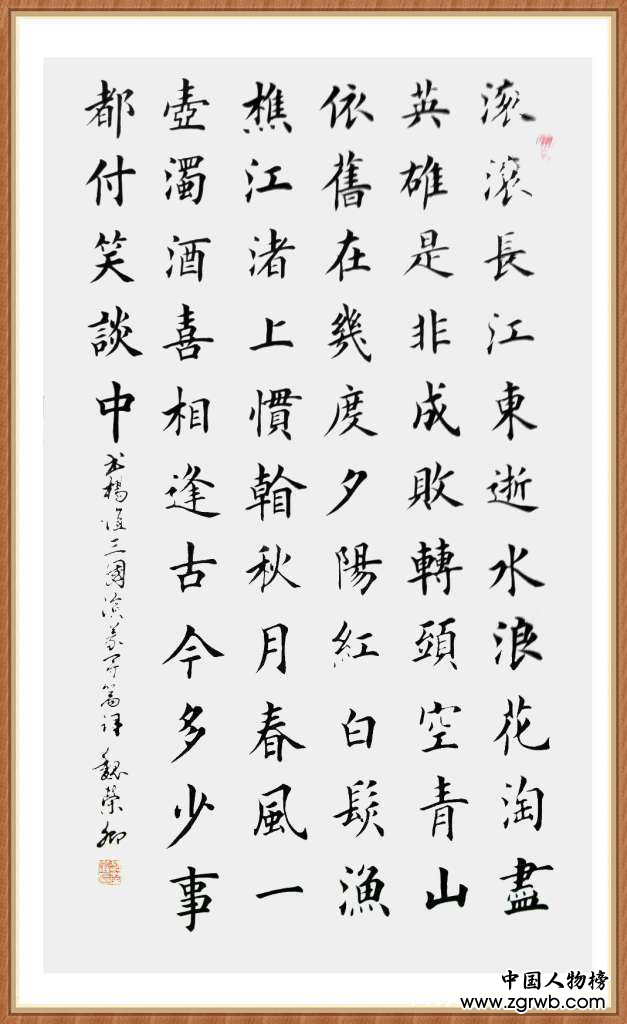 滚滚長江東逝水浪花淘盡
英雄是非成敗轉頭空青山
依舊在幾度夕陽紅白髮漁
樵江渚上慣看秋月春風一
壺濁酒喜相逢古今多少事
都付笑談中
书楊慎三國演義开篇詞 魏榮卿
中国人物榜
www.zgrwb.com